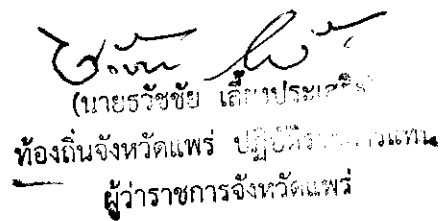 (นายธวัชชัย เลี้ยงประเสริฐ)
ท้องถิ่นจังหวัดแพร่ ปฏิบัติราชการแทน
ผู้ว่าราชการจังหวัดแพร่